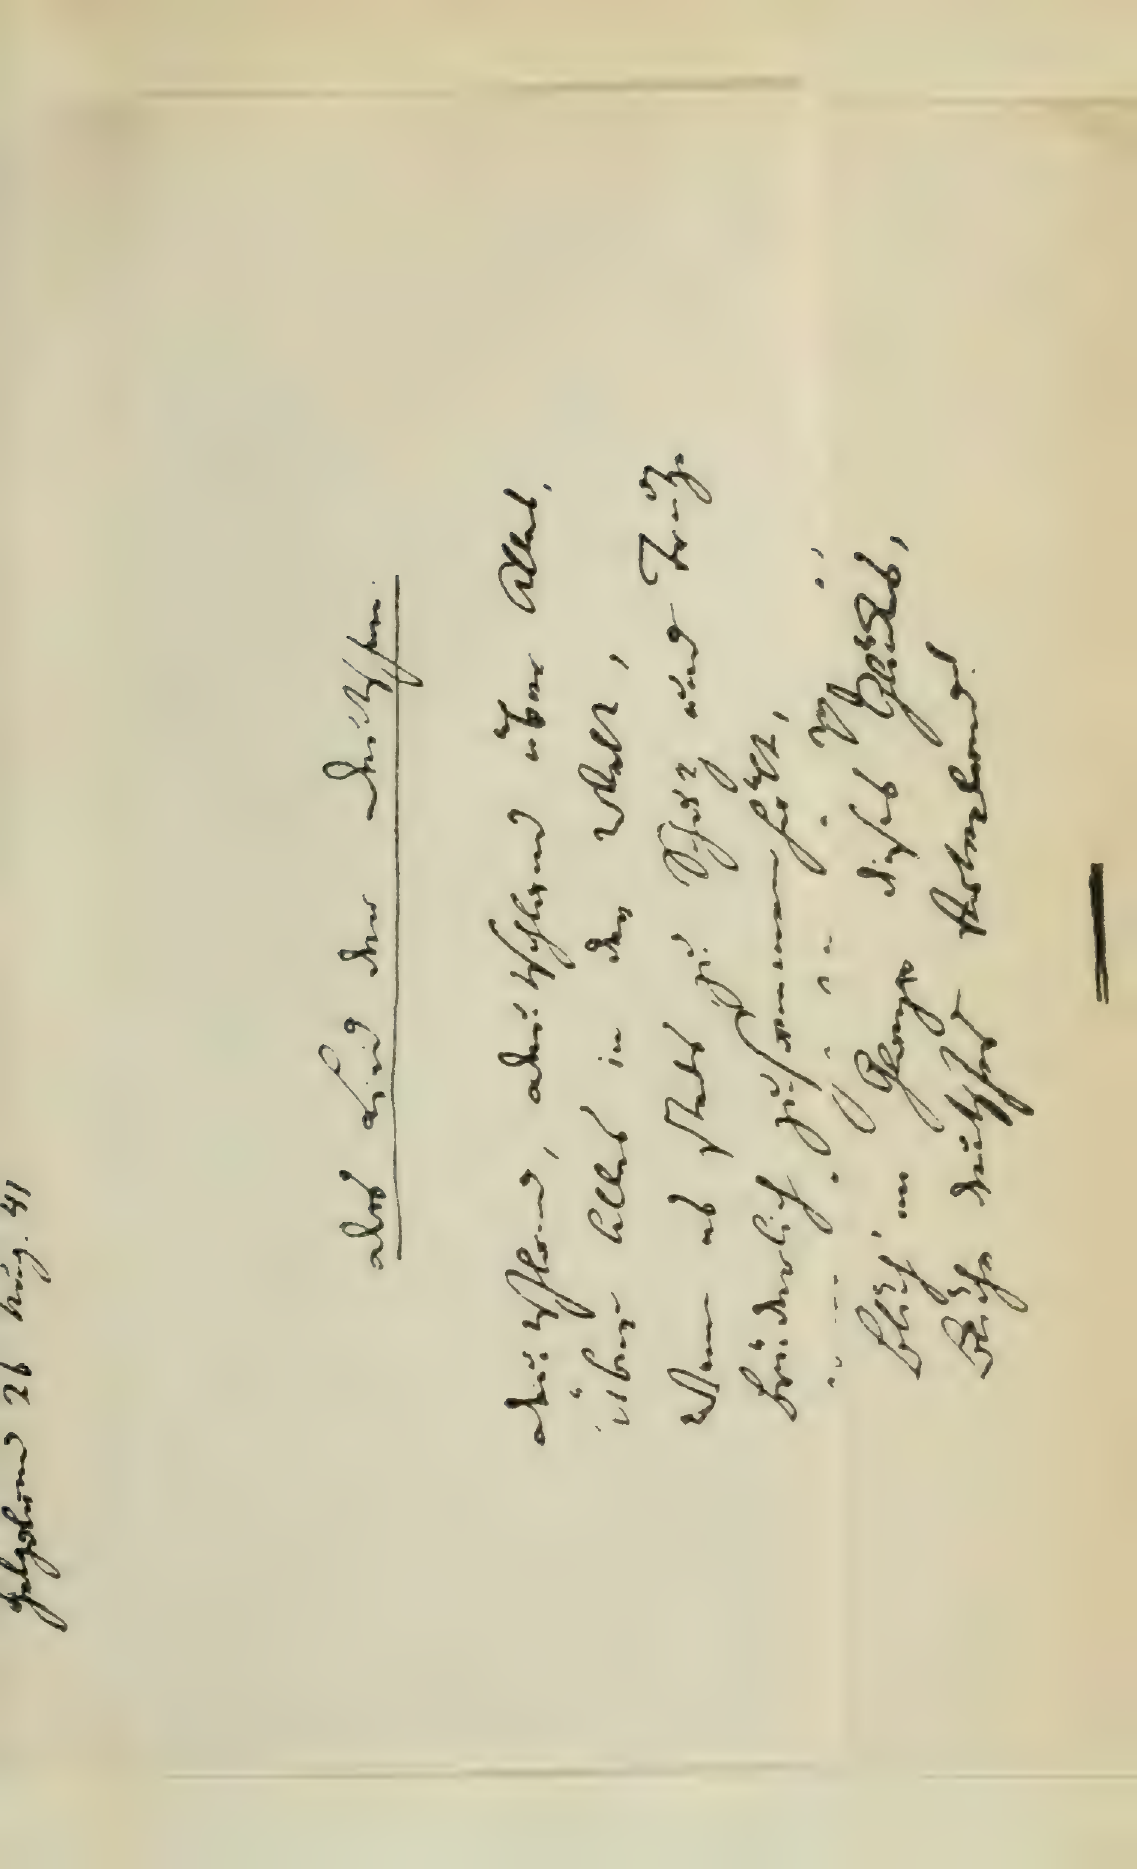 Helgoland 26 Aug. 41
Das Lied der Deutschen.
Deutschland, Deutschland über Alles,
über Alles in der Welt,
Wenn es stets zu Schutz und Trutze
brüderlich zusammenhält,
Blüh' im Glanze dieses Glückes,
Blühe deutsches Vaterland!